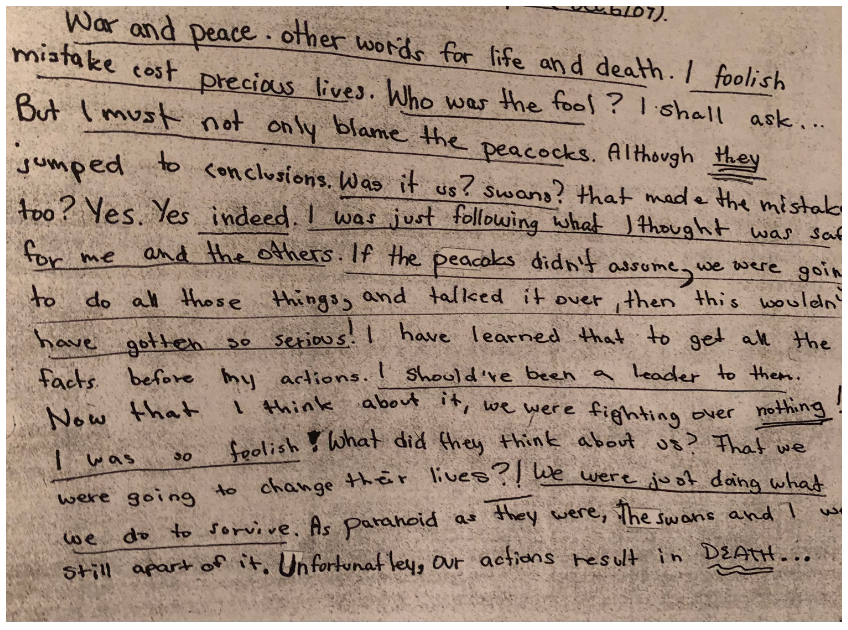 War and peace. other words for life and death. I foolish
mistake cost precious lives. Who was the fool? I shall ask...
But I must not only blame the peacocks. Although they
jumped to conclusions. Was it us? swans? that made the mistake
too? Yes. Yes indeed. I was just following what I thought was saf
for me and the others. If the peacoks didn't assume, we were goin
to do all those things, and talked it over, then this wouldn'
have gotten so serious! I have learned that to get all the
facts before my actions. I should've been a leader to them.
Now that I think about it, we were fighting over nothing!
I was so foolish! What did they think about us? That we
were going to change their lives?! We were just doing what
we do to sorvive. As paranoid as they were, The swans and I we
still apart of it. Unfortunatley, our actions result in DEATH...